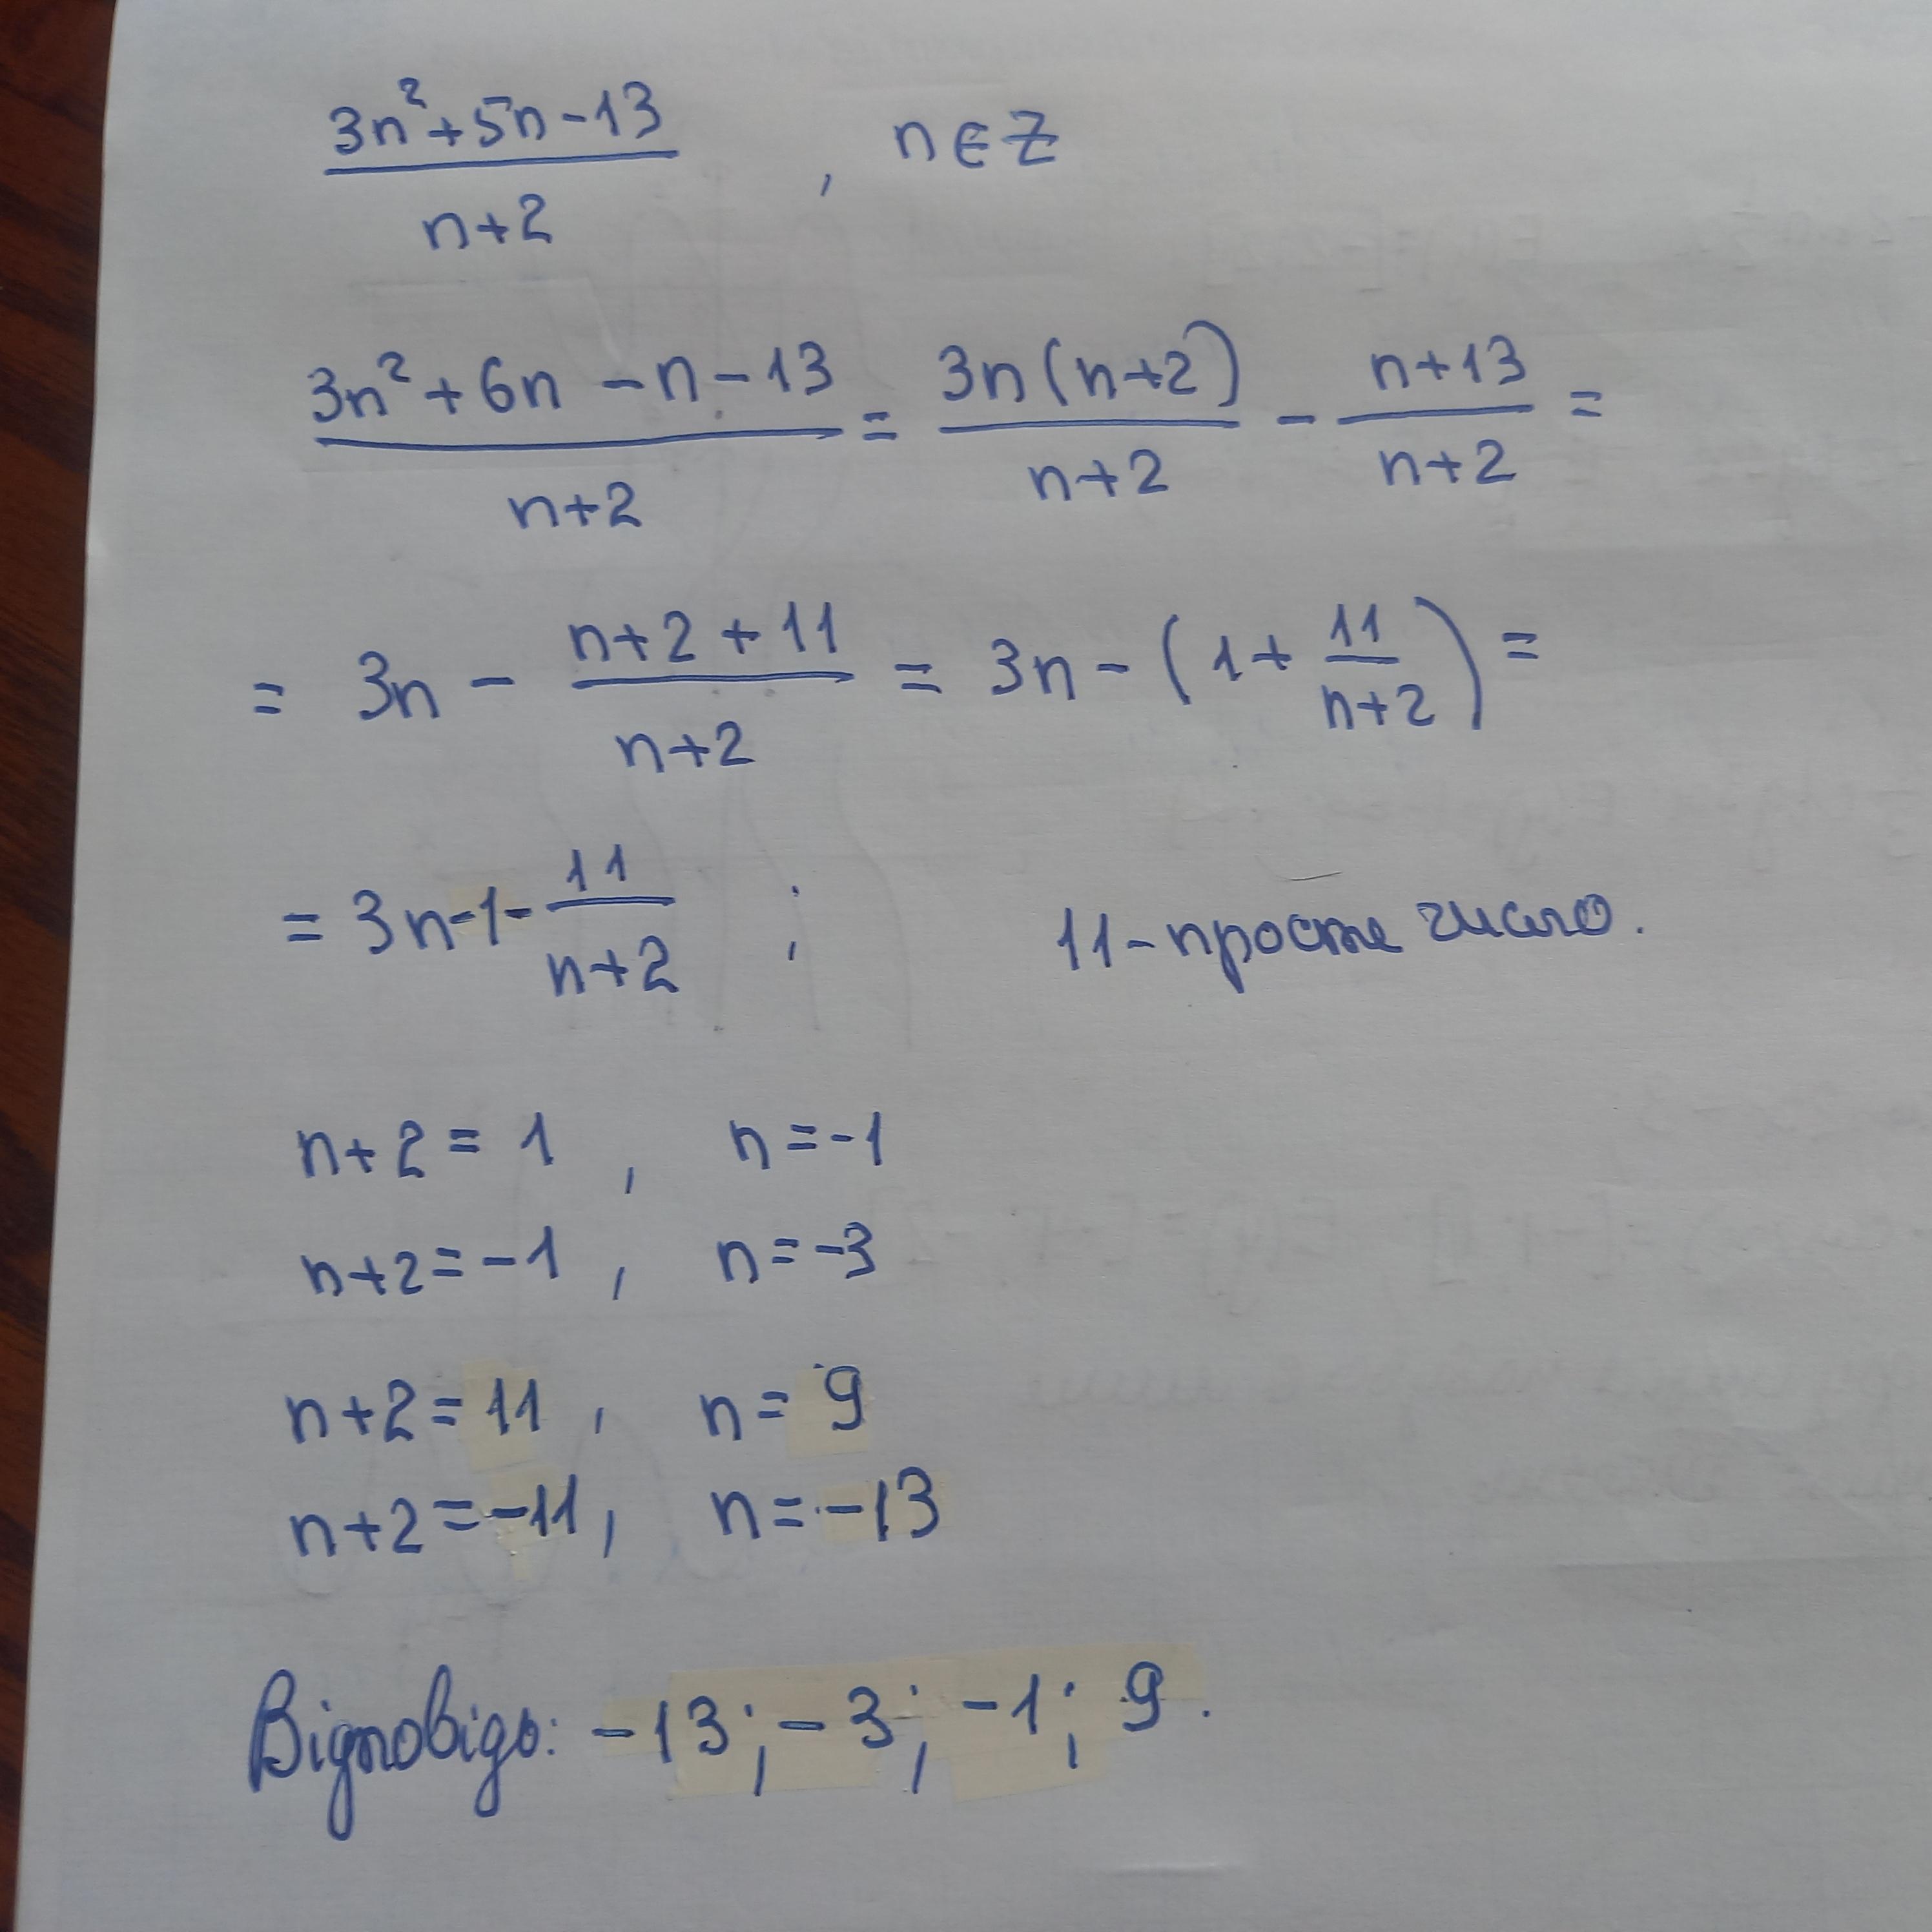 (3n²+5n-13)/(n+2) , n∈Z
(3n²+6n-n-13)/(n+2) = 3n(n+2)/(n+2) - (n+13)/(n+2) =
= 3n - (n+2+11)/(n+2) = 3n - (1+11/(n+2)) =
= 3n-1-11/(n+2) ; 11-просте число.
n+2=1 , n=-1
n+2=-1 , n=-3
n+2=11 , n=9
n+2=-11 , n=-13
Відповідь: -13; -3; -1; 9.